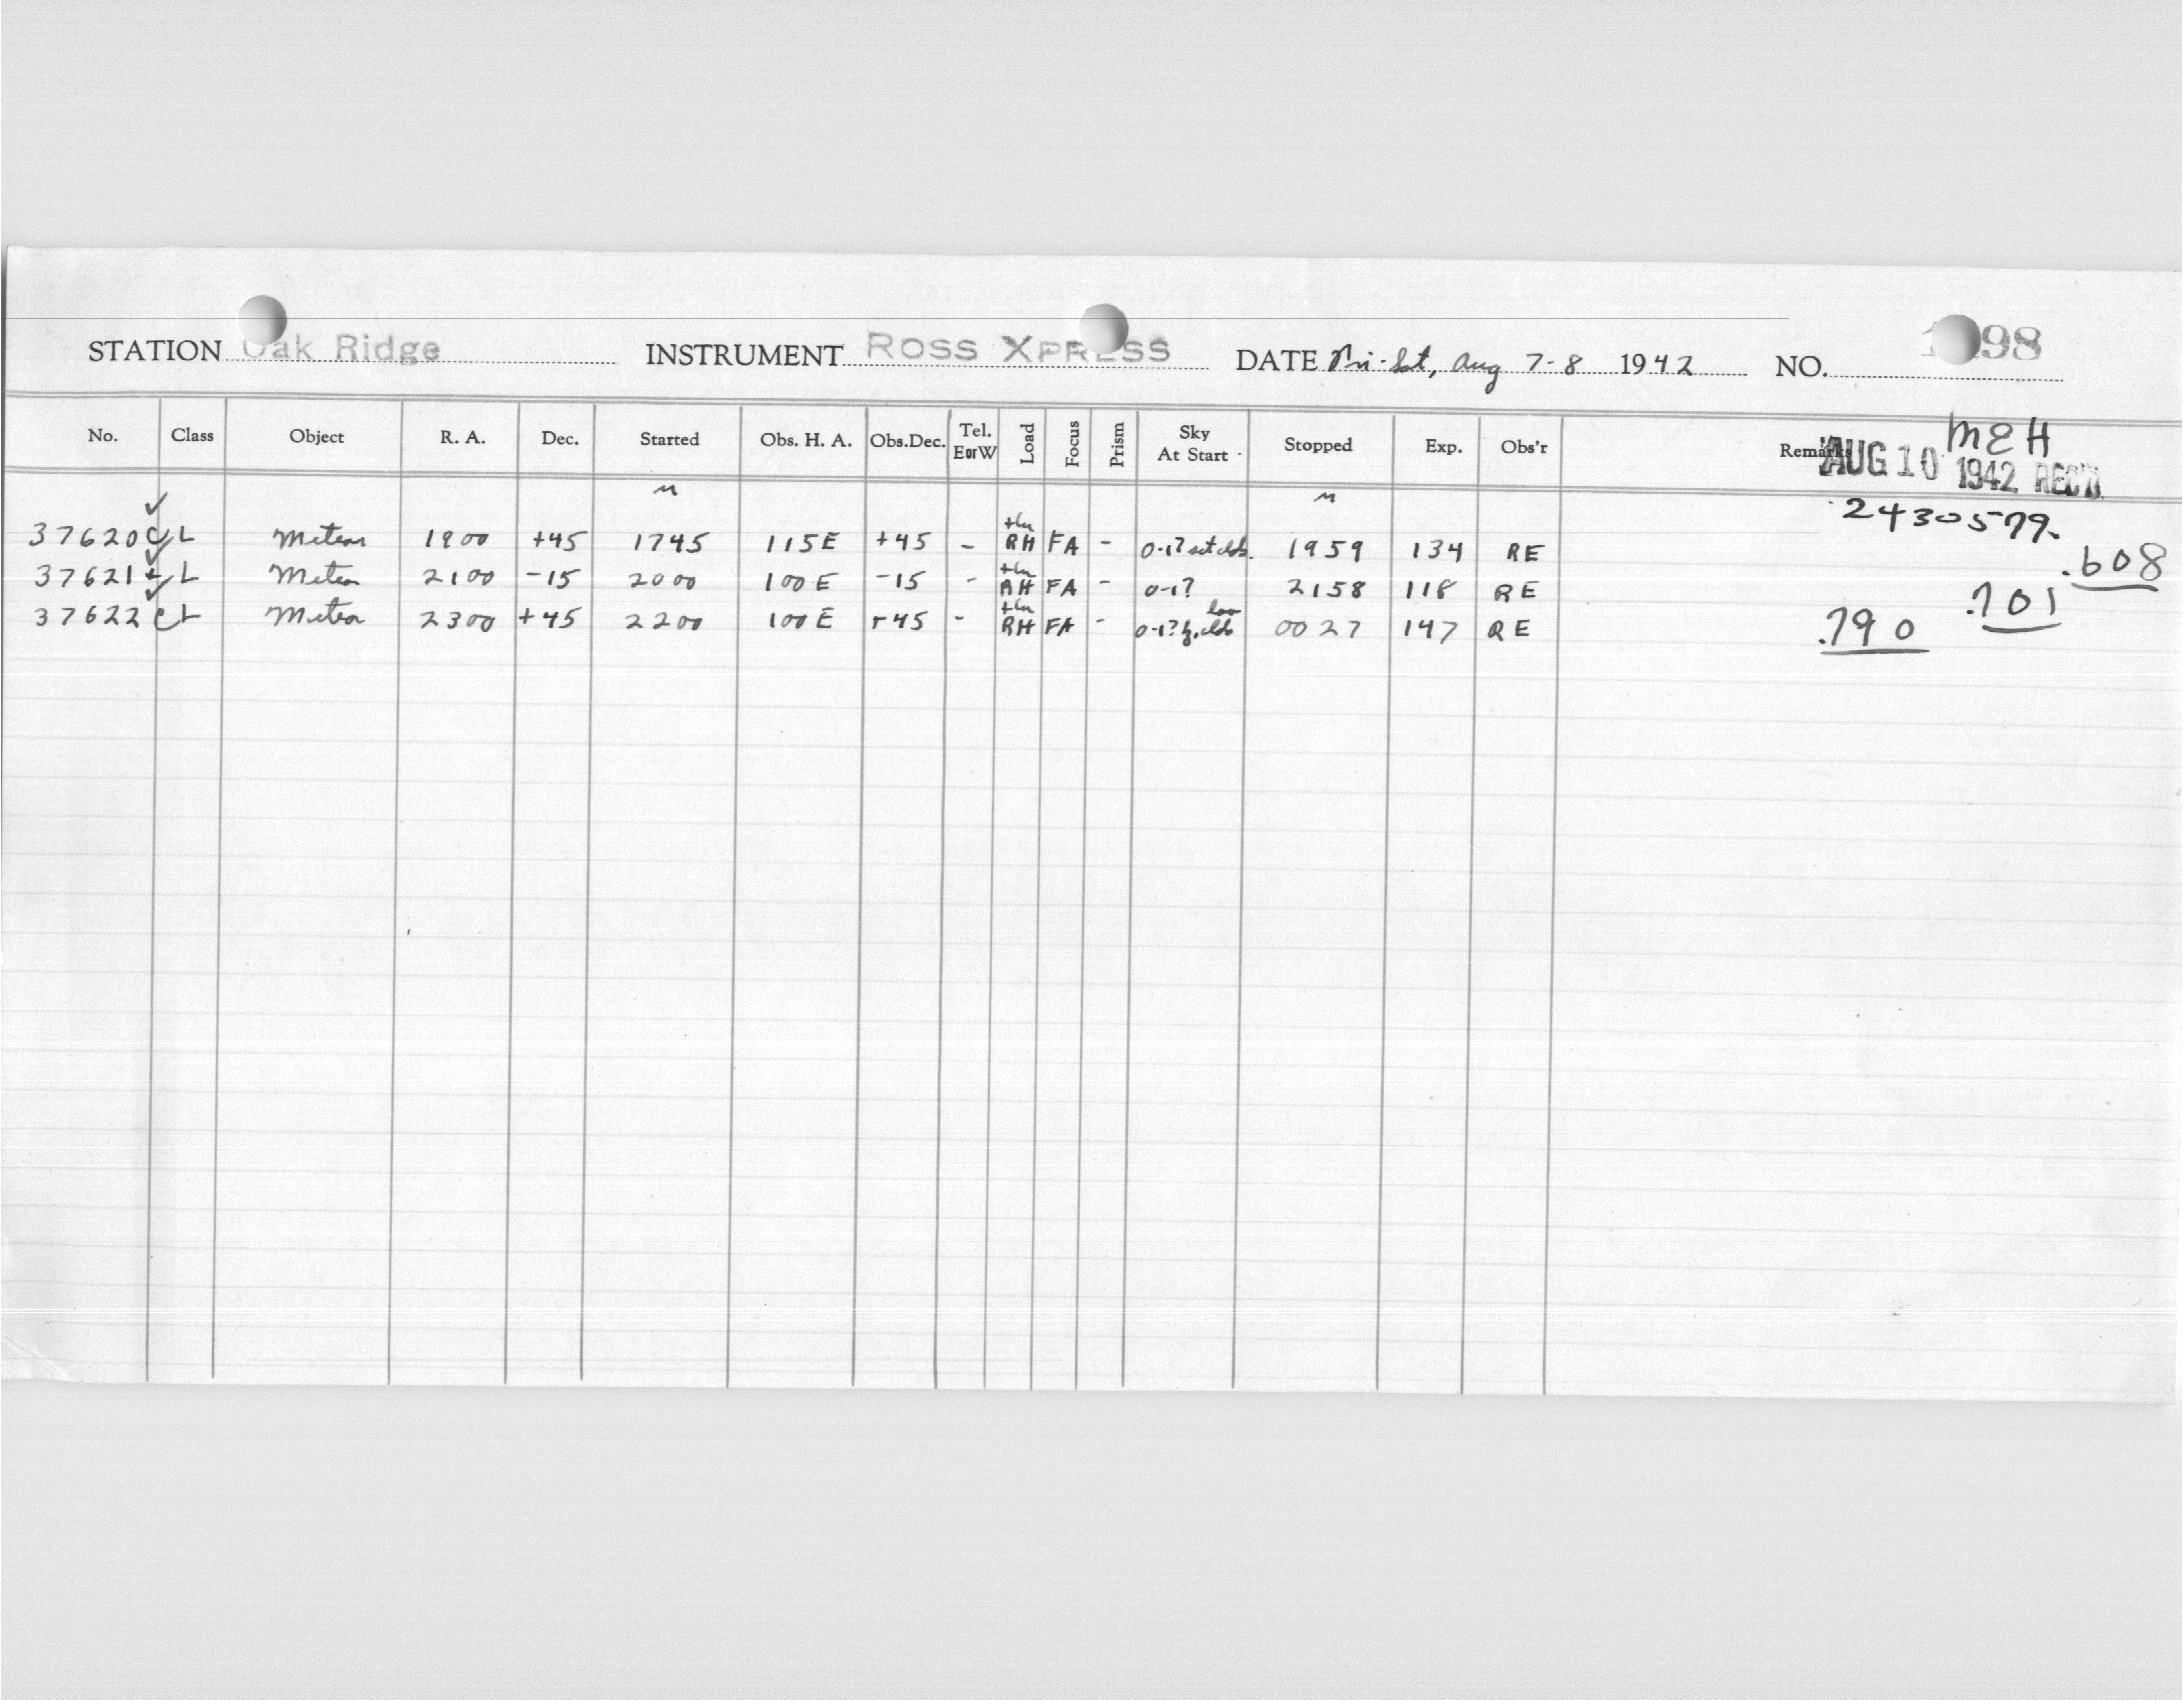 STATION Oak Ridge INSTRUMENT ROSS XPRESS DATE Fri-Sat, Aug 7-8 1942 NO. 98
No. Class Object R. A. Dec. Started Obs. H. A. Obs.Dec. Tel. EorW Load Focus Prism Sky At Start Stopped Exp. Obs'r Remarks
MEH
AUG 10 1942 REC'D.
2430579.
37620 C L Meteor 1900 +45 1745 115E +45 - RH FA - 0-1? set clds. 1959 134 RE .608
37621 L Meteor 2100 -15 2000 100E -15 - RH FA - 0-1? 2158 118 RE .701
37622 C L Meteor 2300 +45 2200 100E +45 - RH FA - 0-1? low clds 0027 147 RE .790